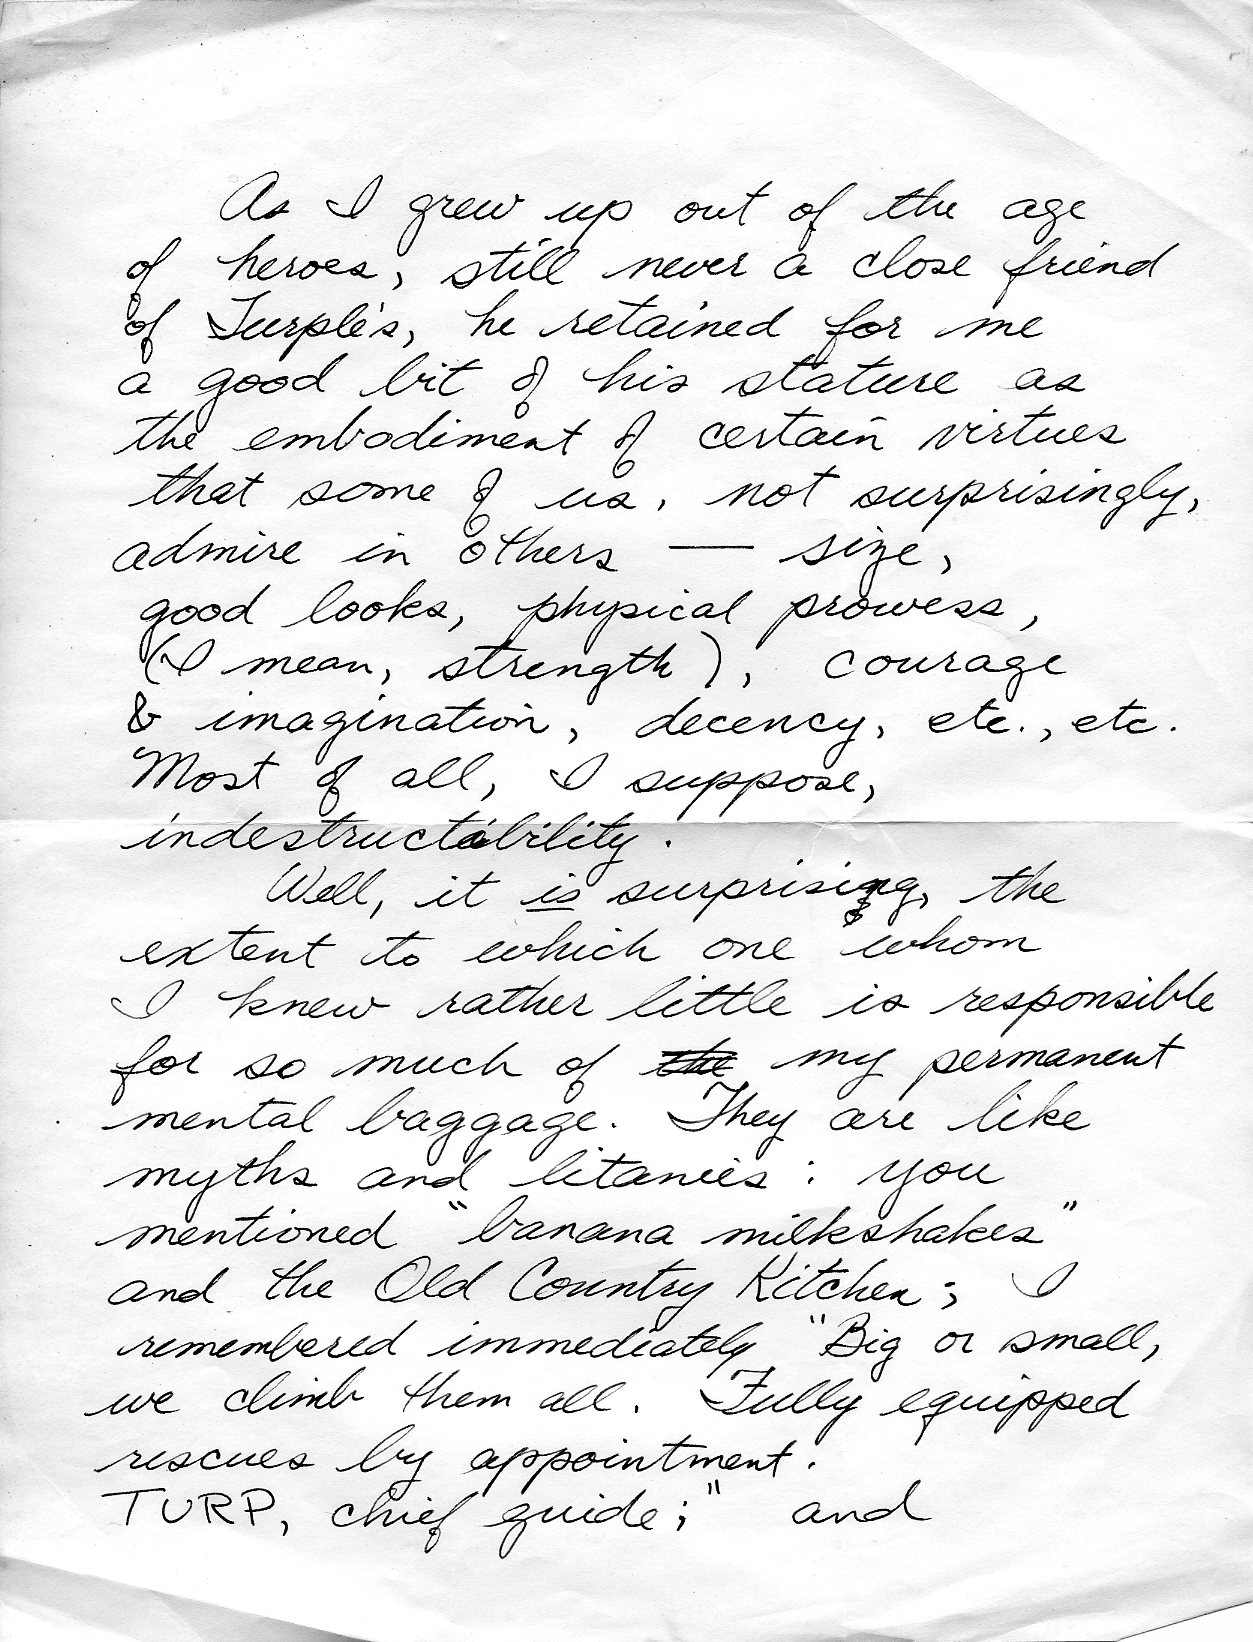 As I grew up out of the age
of heroes, still never a close friend
of Turple's, he retained for me
a good bit of his stature as
the embodiment of certain virtues
that some of us, not surprisingly,
admire in others — size,
good looks, physical prowess,
(I mean, strength), courage
& imagination, decency, etc., etc.
Most of all, I suppose,
indestructibility.
Well, it is surprising, the
extent to which one whom
I knew rather little is responsible
for so much of the my permanent
mental baggage. They are like
myths and litanies: you
mentioned "banana milkshakes"
and the Old Country Kitchen; I
remembered immediately "Big or small,
we climb them all. Fully equipped
rescues by appointment.
TURP, chief guide;" and